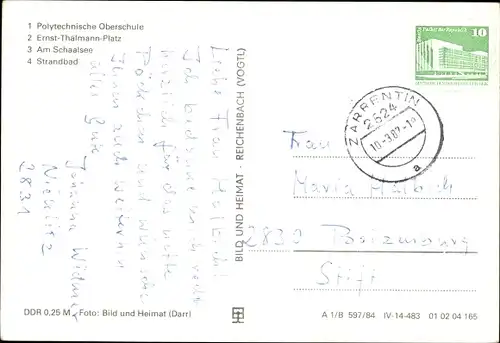 1 Polytechnische Oberschule
2 Ernst-Thälmann-Platz
3 Am Schaalsee
4 Strandbad
Liebe Frau
Ich bedanke mich recht
herzlich für das nette
Päckchen und wünsche
Ihnen auch weiterhin
alles Gute
Johanna
2831
DDR 0,25 M Foto: Bild und Heimat (Darr)
BILD UND HEIMAT REICHENBACH (VOGTL)
10
ZARRENTIN
2824
10-3.87-1
a
Frau
Maria
2830 Boizenburg
Stift
A 1/B 597/84 IV-14-483 01 02 04 165